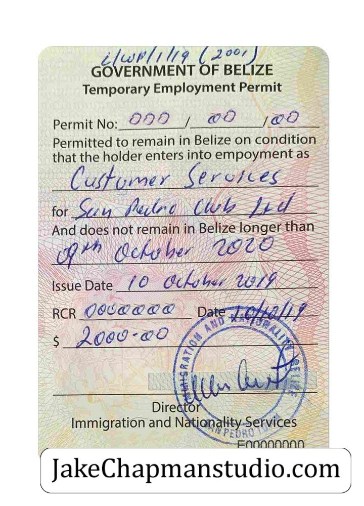 i/WP/1/19 (2001)
GOVERNMENT OF BELIZE
Temporary Employment Permit
Permit No: 000 / 00 / 00
Permitted to remain in Belize on condition
that the holder enters into empoyment as
Customer Services
for San Pedro Club Ltd
And does not remain in Belize longer than
09th October 2020
Issue Date 10 October 2019
RCR 0000000 Date 10/10/19
$ 2000-00
IMMIGRATION AND NATIONALITY BELIZE
SAN PEDRO TOWN
Director
Immigration and Nationality Services
E00000000
JakeChapmanstudio.com